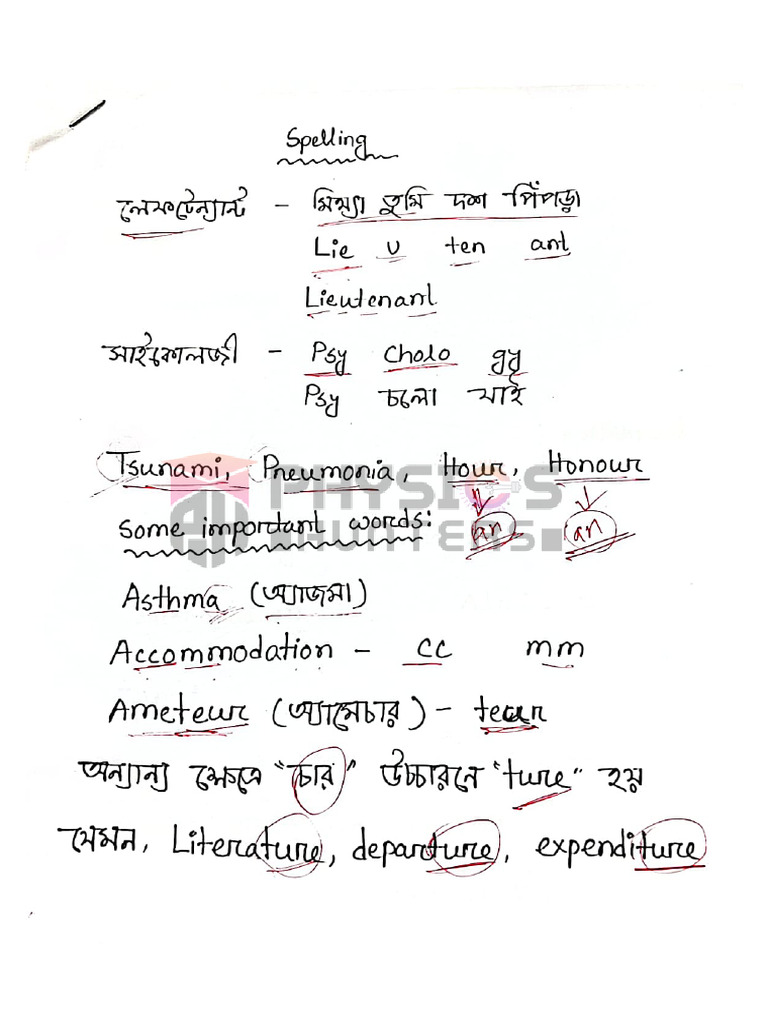 Spelling
লেফটেন্যান্ট - মিথ্যা তুমি দশ পিঁপড়া
Lie u ten ant
Lieutenant
সাইকোলজী - Psy cholo gy
Psy চলো যাই
Tsunami, Pneumonia, Hour, Honour
PHYSICS
HUNTERS
some important words: an an
Asthma (অ্যাজমা)
Accommodation - cc mm
Ameteur (অ্যামেচার) - teur
অন্যান্য ক্ষেত্রে "চার" উচ্চারনে "ture" হয়
যেমন, Literature, departure, expenditure